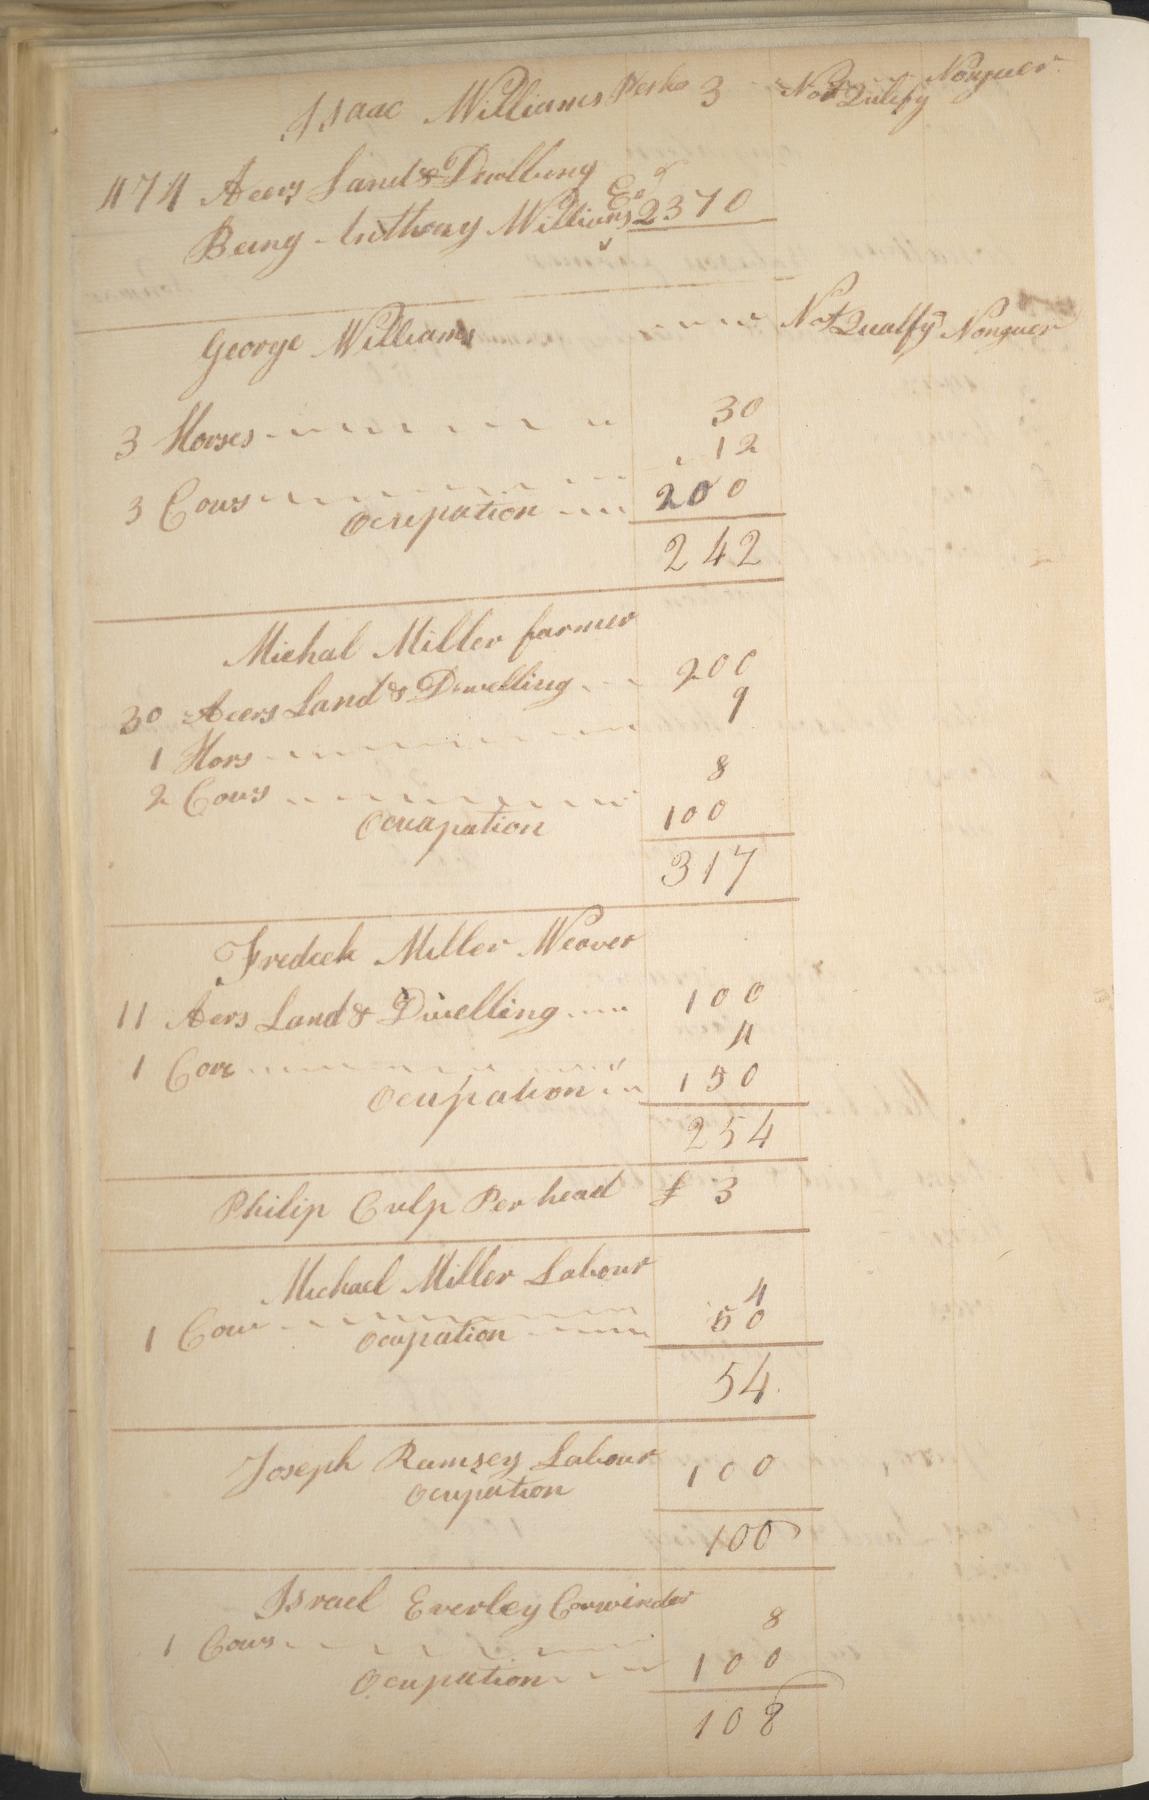 Isaac Williams Perhe 3 Not Qulify Nonjuer
474 Acers Land & Dwelleng
Being Anthony Williams Esr 2370
George Williams Not Qualfy Nonjuer
3 Horses 30
3 Cows 12
Ocupation 200
242
Michal Miller farmer
30 Acers Land & Dwelling 200
1 Hors 9
2 Cows 8
Ocuapation 100
317
Fredeck Miller Weaver
11 Aers Land & Dwelling 100
1 Cow 4
Ocupation 150
254
Philip Culp Per head £ 3
Michael Miller Labour
1 Cow 4
Ocupation 50
54
Joseph Ramsey Labour
Ocupation 100
100
Israel Everley
1 Cows 8
Ocupation 100
108